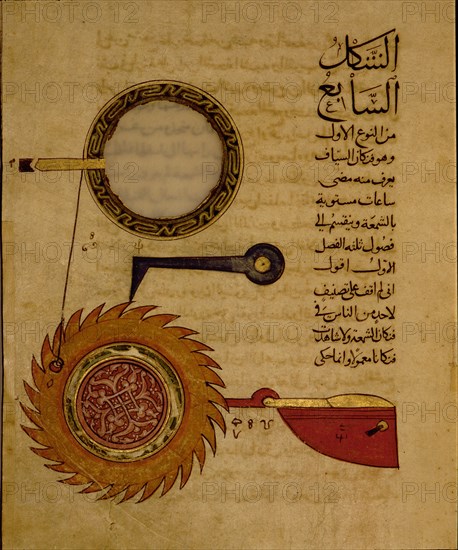 الشكل
السابع
من النوع الاول
وهو فنكان السياف
يعرف منه مضى
ساعات مستوية
بالشمعة وينقسم الى
فصول ثلثه الفصل
الاول اقول
انى لم اقف على تصنيف
لاحد من الناس فى
فنكان الشمعة ولا شاهدت
فنكانا معمولا وانما حكى
PHOTO12